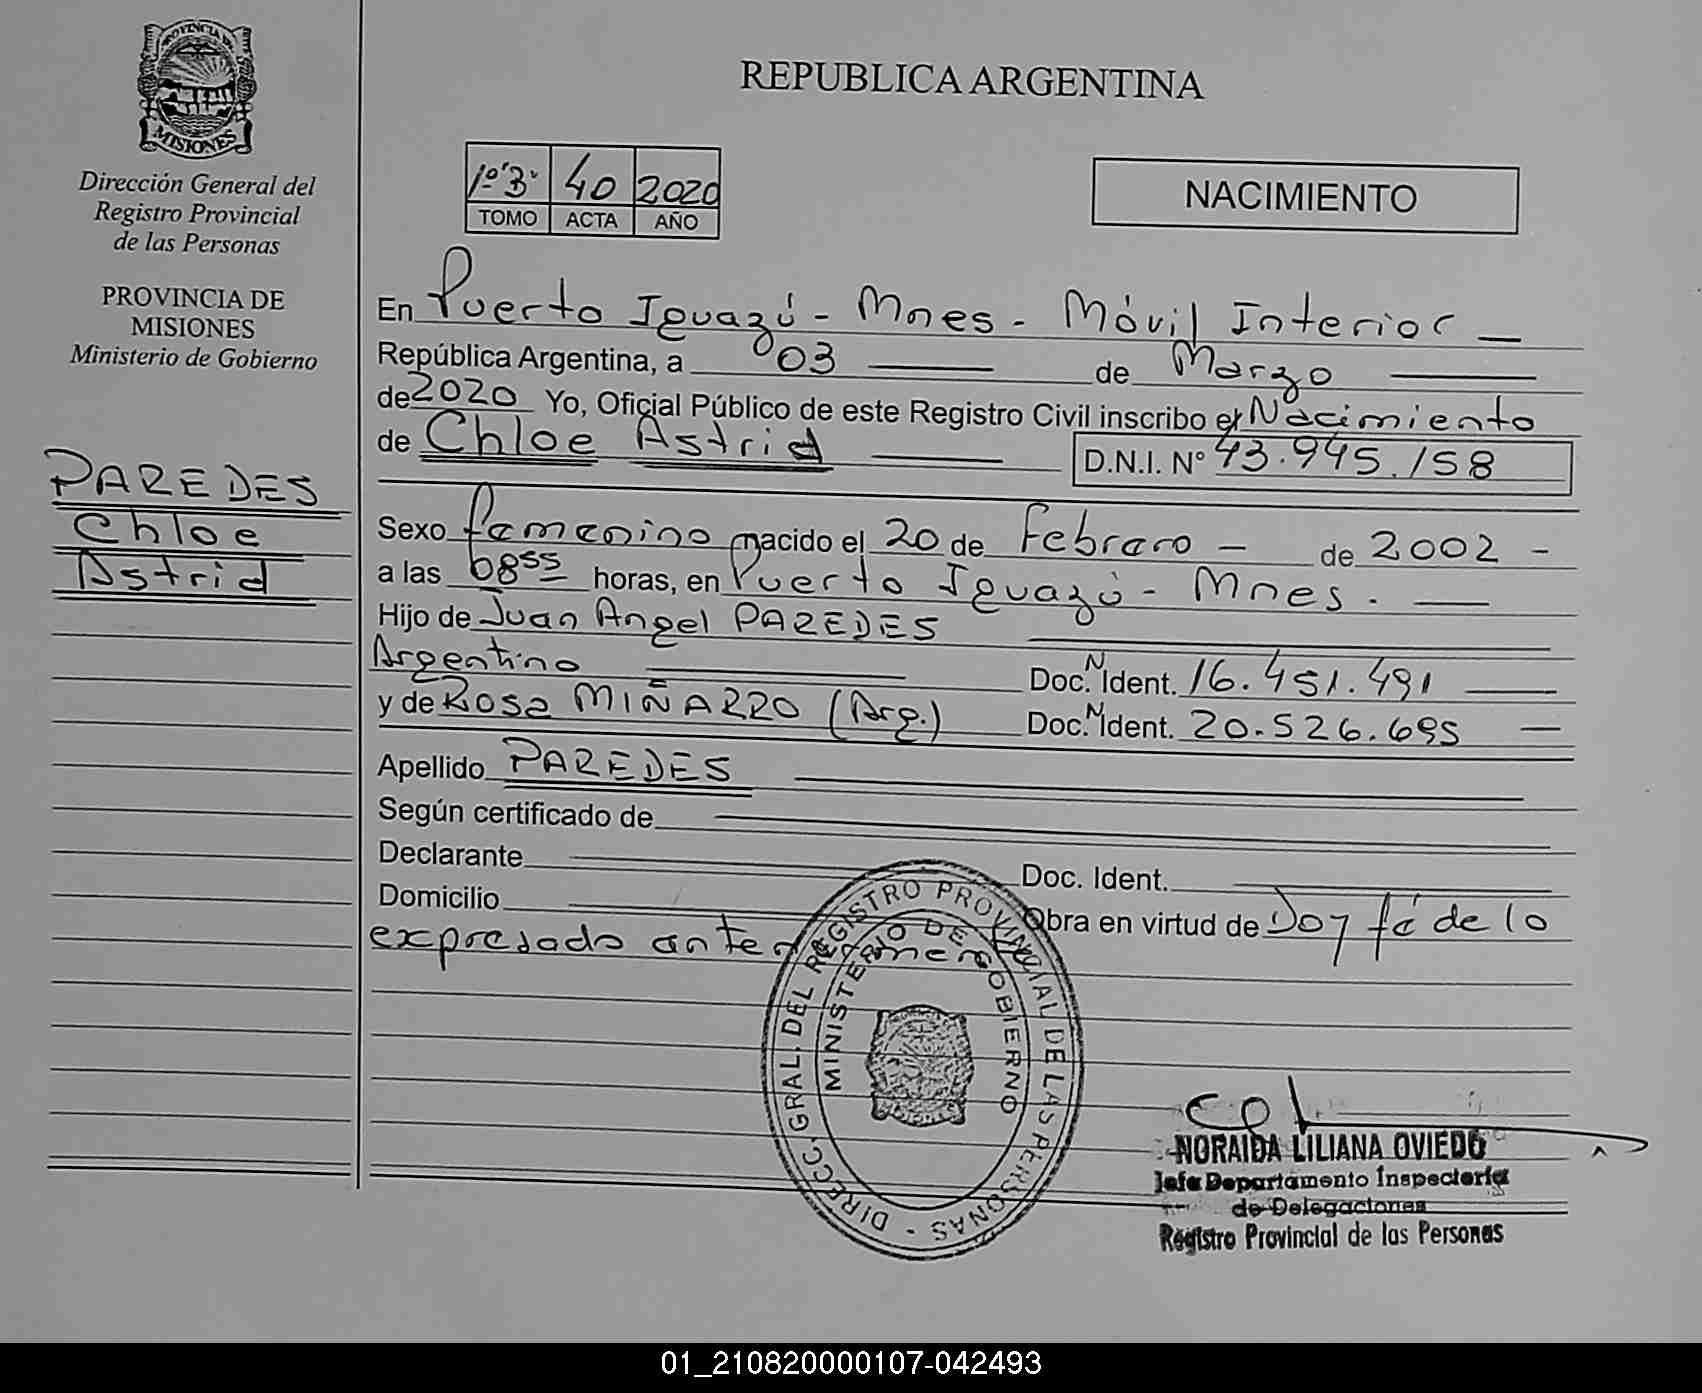 PROVINCIA DE
MISIONES
Dirección General del
Registro Provincial
de las Personas
PROVINCIA DE
MISIONES
Ministerio de Gobierno
PAREDES
Chloe
Astrid
REPUBLICA ARGENTINA
1º"B" 40 2020
TOMO ACTA AÑO
NACIMIENTO
En Puerto Iguazú - Mnes - Móvil Interior
República Argentina, a 03 de Marzo
de 2020 Yo, Oficial Público de este Registro Civil inscribo el Nacimiento
de Chloe Astrid D.N.I. N° 43.945.158
Sexo femenino nacido el 20 de Febrero - de 2002 -
a las 08⁵⁵ horas, en Puerto Iguazú - Mnes. -
Hijo de Juan Angel PAREDES
Argentino Doc. N Ident. 16.451.491
y de Rosa MIÑARRO (Arg.) Doc. N Ident. 20.526.695 -
Apellido PAREDES
Según certificado de
Declarante Doc. Ident.
Domicilio Obra en virtud de Doy fé de lo
expresado anteriormente
DIRECC. GRAL. DEL REGISTRO PROVINCIAL DE LAS PERSONAS -
MINISTERIO DE GOBIERNO
NORAIDA LILIANA OVIEDO
Jefa Departamento Inspectoría
de Delegaciones
Registro Provincial de las Personas
01_210820000107-042493